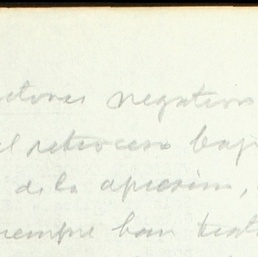 ctores negativos
el retroceso bajo
de la opresión,
siempre han trata